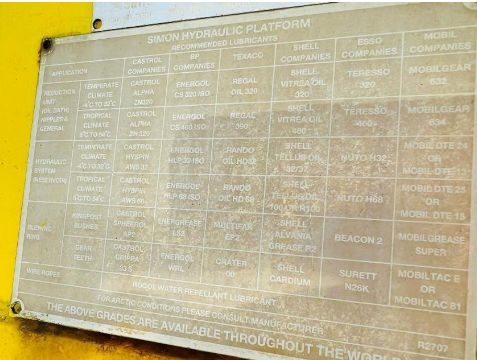 SIMON HYDRAULIC PLATFORM
RECOMMENDED LUBRICANTS
APPLICATION CASTROL COMPANIES BP COMPANIES TEXACO SHELL COMPANIES ESSO COMPANIES MOBIL COMPANIES
REDUCTION UNIT (OIL BATH) NIPPLES & GENERAL
TEMPERATE CLIMATE CASTROL ALPHA ZN320 ENERGOL CS 320 ISO REGAL OIL 320 SHELL VITREA OIL 320 TERESSO 320 MOBILGEAR 632
TROPICAL CLIMATE CASTROL ALPHA ENERGOL CS 460 ISO REGAL 390 SHELL VITREA OIL 460 TERESSO 460 MOBILGEAR 634
HYDRAULIC SYSTEM (RESERVOIR)
TEMPERATE CLIMATE CASTROL HYSPIN AWS 32 ENERGOL HLP 32 ISO RANDO OIL HD32 SHELL TELLUS OIL 32/37 NUTO H32 MOBIL DTE 24 OR MOBIL DTE 13
TROPICAL CLIMATE CASTROL HYSPIN AWS 68 ENERGOL HLP 68 ISO RANDO OIL HD 68 SHELL TELLUS OIL 100 OR R100 NUTO H68 MOBIL DTE 25 OR MOBIL DTE 15
SLEWING RING
KINGPOST BUSHES CASTROL SPHEEROL AP2 ENERGREASE LS3 MULTIFAK EP2 SHELL ALVANIA GREASE R2 BEACON 2 MOBILGREASE SUPER
GEAR TEETH CASTROL GRIPPA 33 S ENERGOL WRL CRATER 00 SHELL CARDIUM SURETT N26K MOBILTAC E OR MOBILTAC 81
WIRE ROPES ROCOL WATER REPELLANT LUBRICANT
FOR ARCTIC CONDITIONS PLEASE CONSULT MANUFACTURER R2707
THE ABOVE GRADES ARE AVAILABLE THROUGHOUT THE WORLD